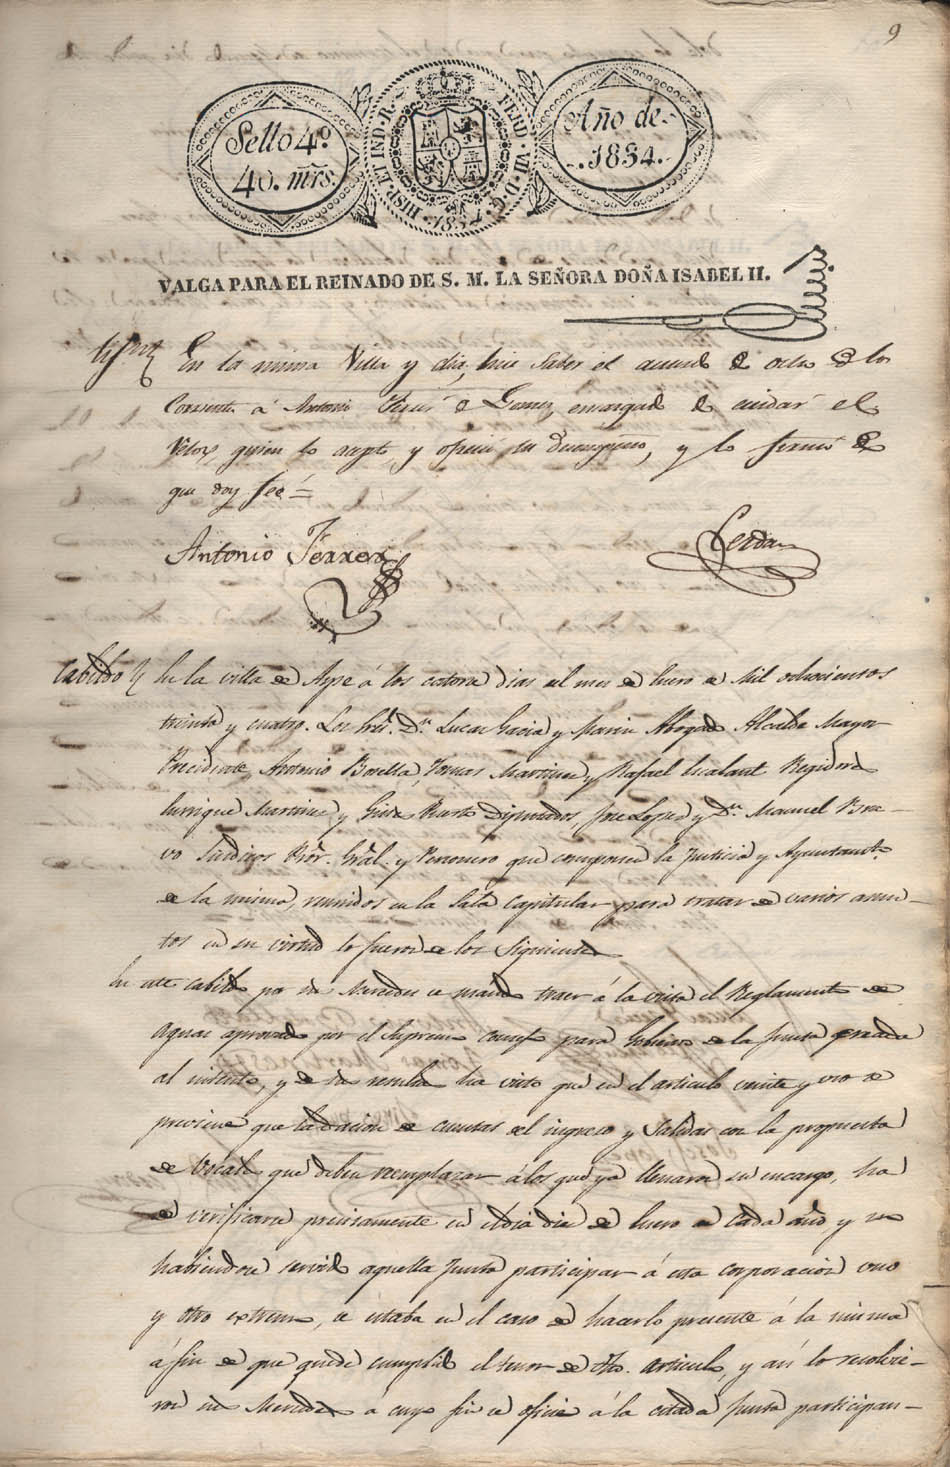 9
Sello 4º
40. mrs.
HISP. ET IND. R. FERD. VII. D. G. 1834
Año de
1834.
VALGA PARA EL REINADO DE S. M. LA SEÑORA DOÑA ISABEL II.
En la misma Villa y dia, hice saber el acuerdo de ocho de los
Corrientes á Antonio Ferrer de Gomez, encargado de cuidar el
Relox, quien lo acepto y ofrecio su desempeño, y lo firmó de
que doy fee =
Antonio Ferrer
Cerdan
Cabildo En la villa de Aspe á los catorce dias del mes de Enero de Mil ochocientos
treinta y cuatro. Los Sres. Dn. Lucas Garcia y Marin Abogado Alcalde Mayor
Presidente, Antonio Botella, Tomas Martinez y Rafael Escalant Regidores
Enrrique Martinez y Gines Diputados, Jose Lopez y Dn. Manuel Bra-
vo Sindicos Ror. Gral. y Personero que componen la Justicia y Ayuntamto.
de la misma, reunidos en la Sala Capitular para tratar de varios asun-
tos en su virtud lo fueron de los Siguientes
En este Cabildo por sus Mercedes se mandó traer á la vista el Reglamento de
Aguas aprovado por el Supremo Consejo para Gobierno de la Junta creada
al intento, y de sus resultas ha visto que en el articulo veinte y uno se
previene que la dacion de cuentas del ingreso y Salidas con la propuesta
de Vocales que deben reemplazar á los que ya llenaron su encargo, ha
de verificarse precisamente en el dia diez de Enero de cada año y no
habiendose servido aquella Junta participar á esta corporacion uno
y otro extremo, se estaba en el caso de hacerlo presente á la misma
á fin de que quede cumplido el tenor de dho. articulo, y asi lo resolvie-
ron sus Mercedes á cuyo fin se oficie á la citada Junta participan-